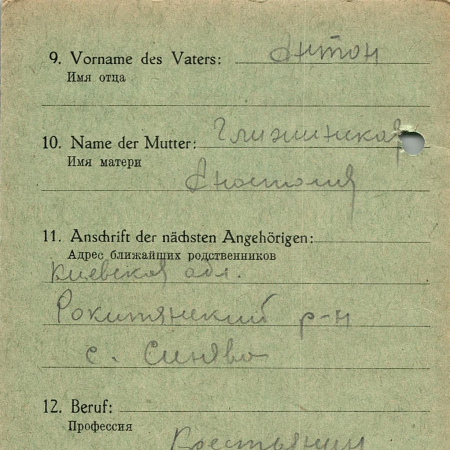 9. Vorname des Vaters: Антон
Имя отца
10. Name der Mutter: Глижинская
Имя матери
Анатолия
11. Anschrift der nächsten Angehörigen:
Адрес ближайших родственников
Киевская обл.
Рокитянский р-н
с. Синява
12. Beruf:
Профессия
Крестьянин